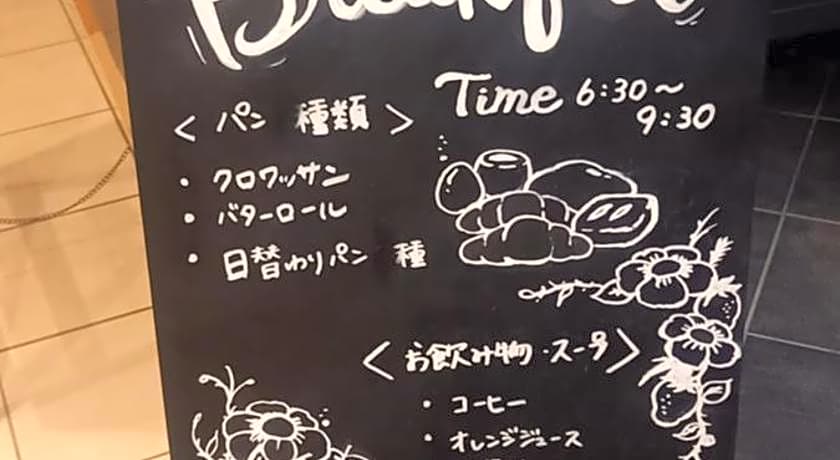 Breakfast
Time 6:30～
9:30
＜パン 種類＞
・クロワッサン
・バターロール
・日替わりパン 種
＜お飲み物・スープ＞
・コーヒー
・オレンジジュース